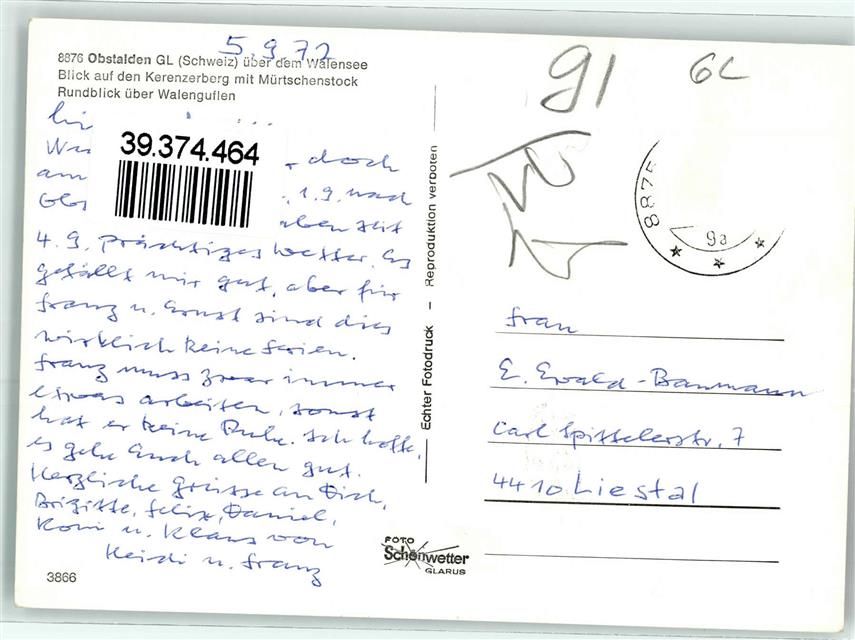 5.9.72
8876 Obstalden GL (Schweiz) über dem Walensee
Blick auf den Kerenzerberg mit Mürtschenstock
Rundblick über Walenguflen
39.374.464
doch
am 1.9. nach
aben seit
4.9. prächtiges Wetter. Es
gefällt mir gut, aber für
Franz u. Ernst sind dies
wirklich keine Ferien.
Franz muss zwar immer
etwas arbeiten, sonst
hat er keine Ruhe. Ich hoffe,
es gehe Euch allen gut.
Herzliche Grüsse an Dich,
Brigitte, Felix, Daniel,
Koni u. Klaus von
Heidi u. Franz
3866
Echter Fotodruck – Reproduktion verboten
FOTO
Schönwetter
GLARUS
91
GL
8875
9a
Frau
E. Ewald-Baumann
Carl Spittelerstr. 7
4410 Liestal